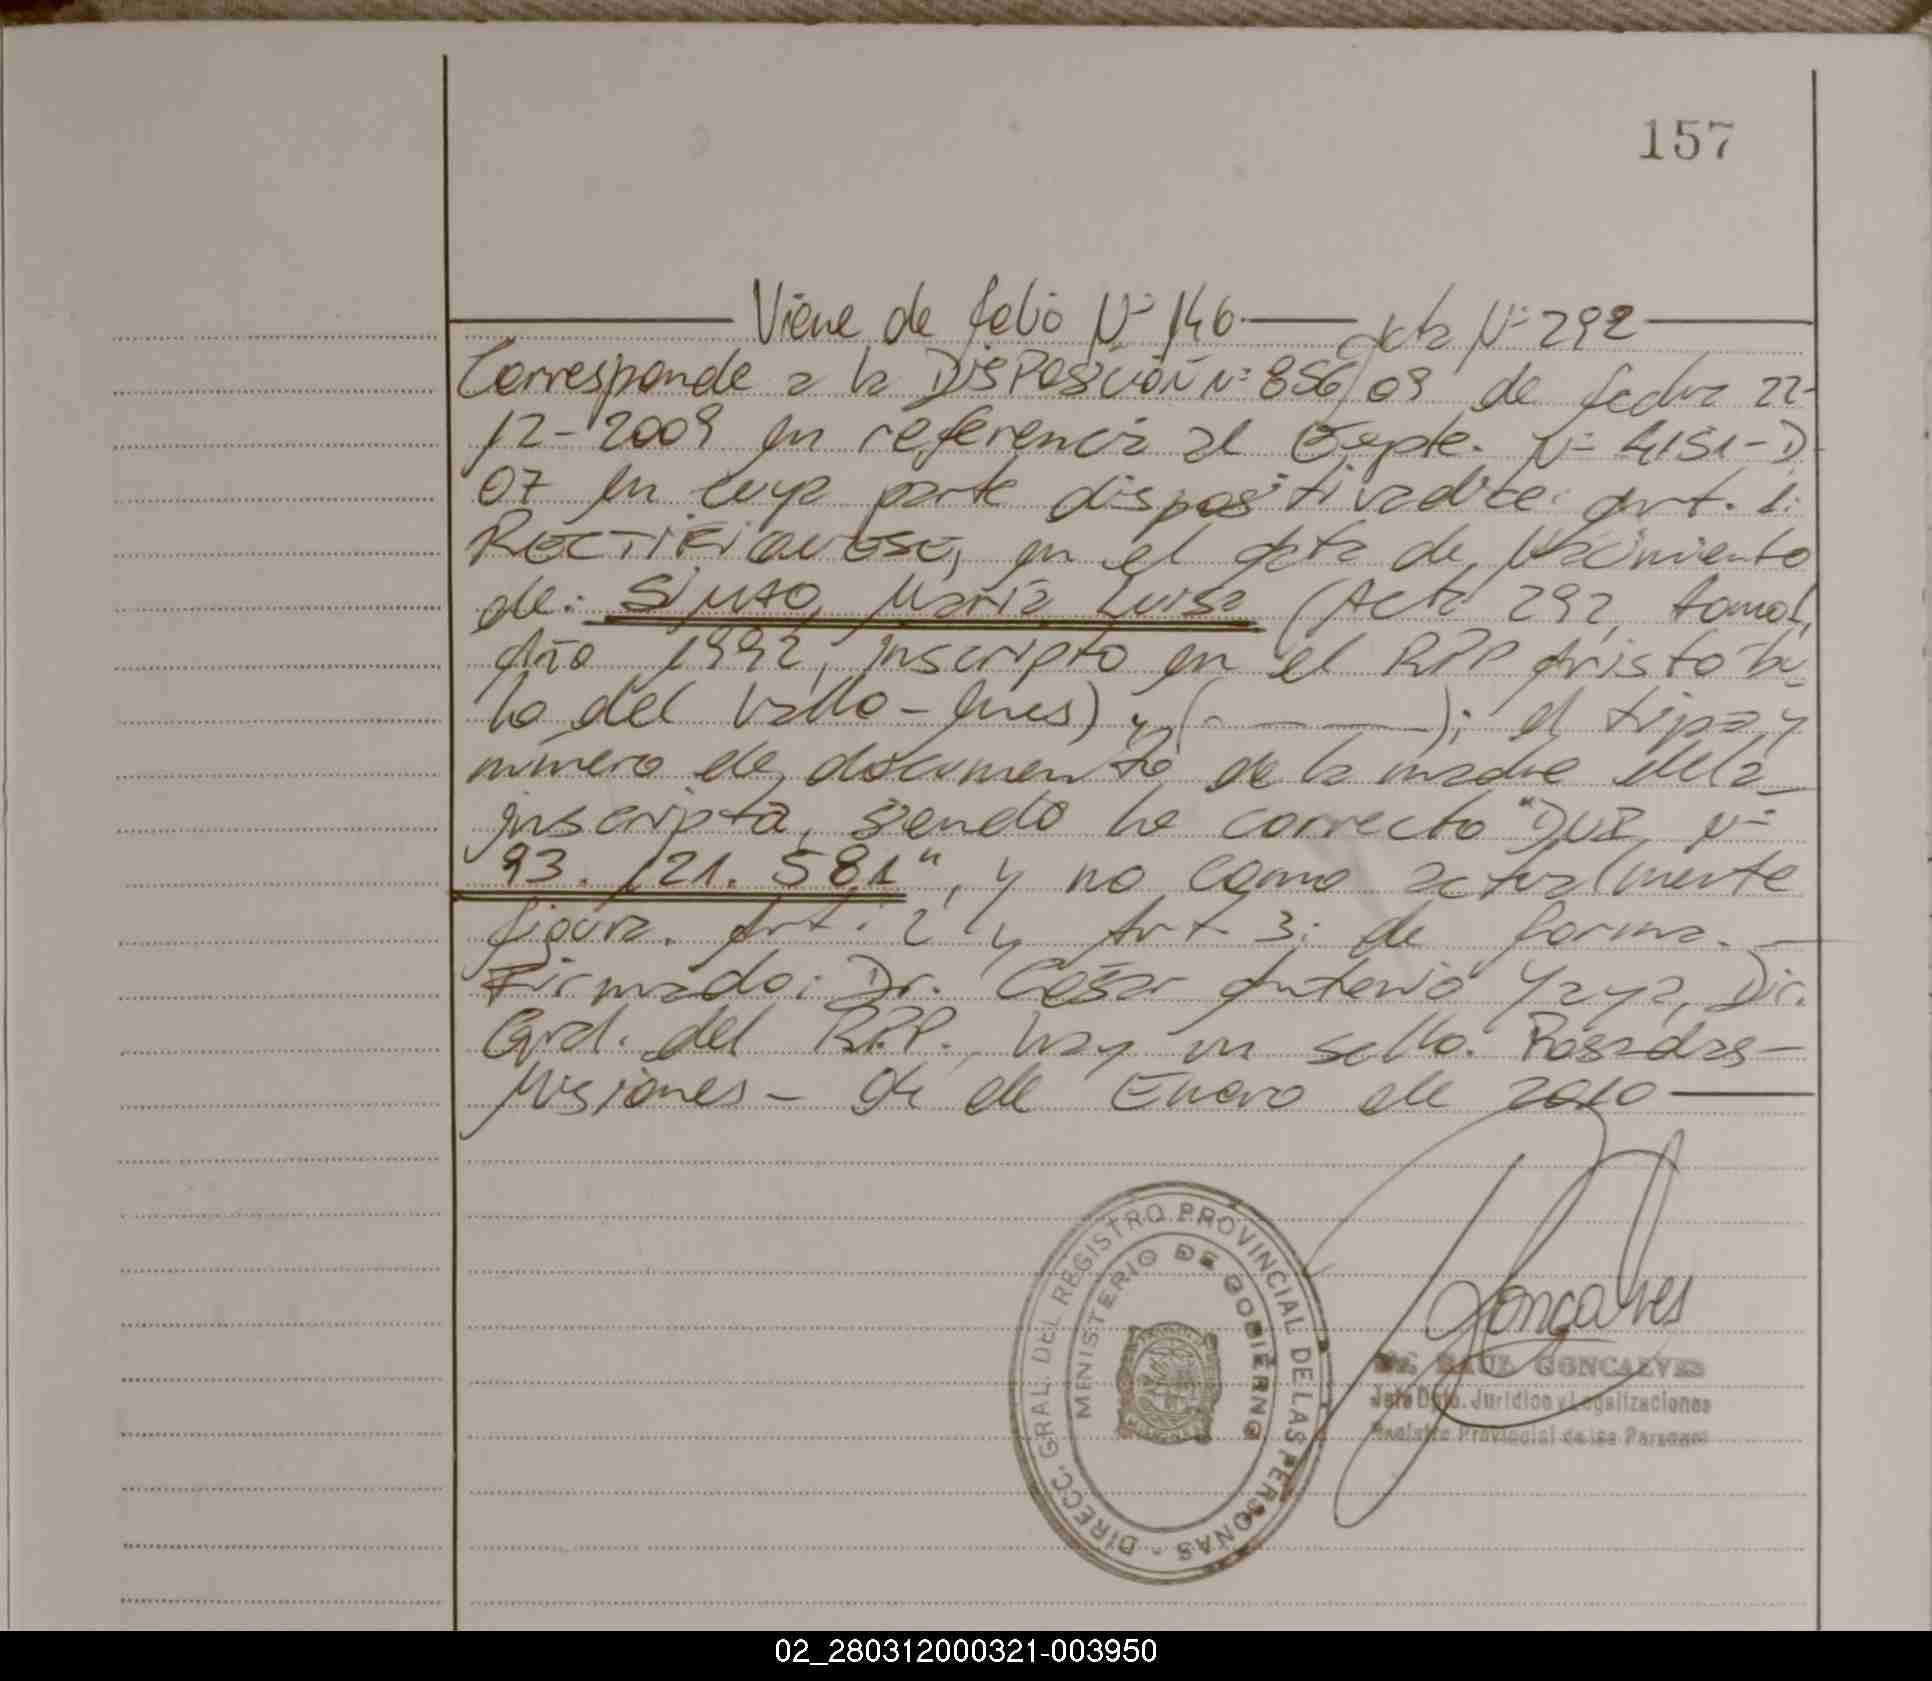 157
Viene de folio Nº 146. Acta Nº 292
Corresponde a la DISPOSICIÓN Nº 856/09 de fecha 22-
12-2009 en referencia al Expte. Nº 4151-D
07 en cuya parte dispositiva dice: Art. 1:
RECTIFICANESE, en el acta de Nacimiento
de: SIMAO, María Luisa (Acta 292, tomo I,
Año 1992, inscripto en el RPP Aristóbu-
lo del Valle - Mnes) y ( - ); el tipo y
número de documento de la madre de la
inscripta, siendo lo correcto "DNI Nº
93.121.581", y no como actualmente
figura. Art. 2 y Art 3: de forma.
Firmado: Dr. César Antonio Yaya, Dir.
Gral. del R.P.P., hay un sello. Posadas-
Misiones - 04 de Enero de 2010
DIRECC. GRAL. DEL REGISTRO PROVINCIAL DE LAS PERSONAS -
MINISTERIO DE GOBIERNO
Goncalves
RAUL GONCALVES
Jefe Dpto. Jurídico y Legalizaciones
Registro Provincial de las Personas
02_280312000321-003950